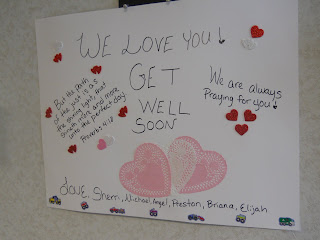 WE LOVE YOU!
GET
WELL
SOON
But the path
of the just is as
the shining light, that
shineth more and more
unto the perfect day.
Proverbs 4:18
We are always
Praying for you!
Love, Sherri, Michael, Angel, Preston, Briana, Elijah